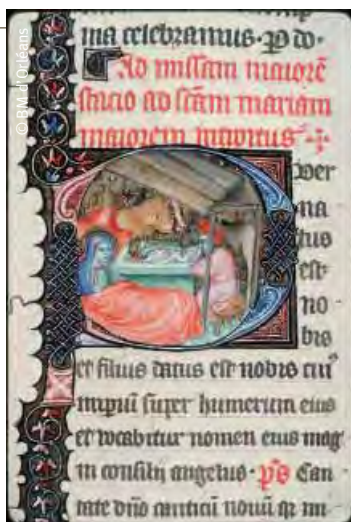 © BM d'Orléans
ma celebramus. P do.
Ad missam maiorē
stacio ad scam mariam
maiorem introitus
Puer
na
tus
est
no
bis
et filius datus est nobis cui⁹
impiū super humerum eius
et vocabitur nomen eius mag
ni consilij angelus. ps Can
tate dño canticū nouū qr mi